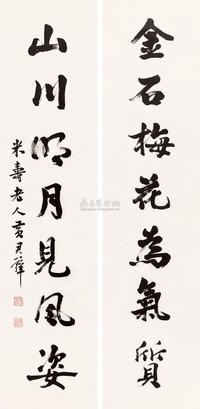 金石梅花為氣質
山川明月見風姿
米壽老人黃君璧